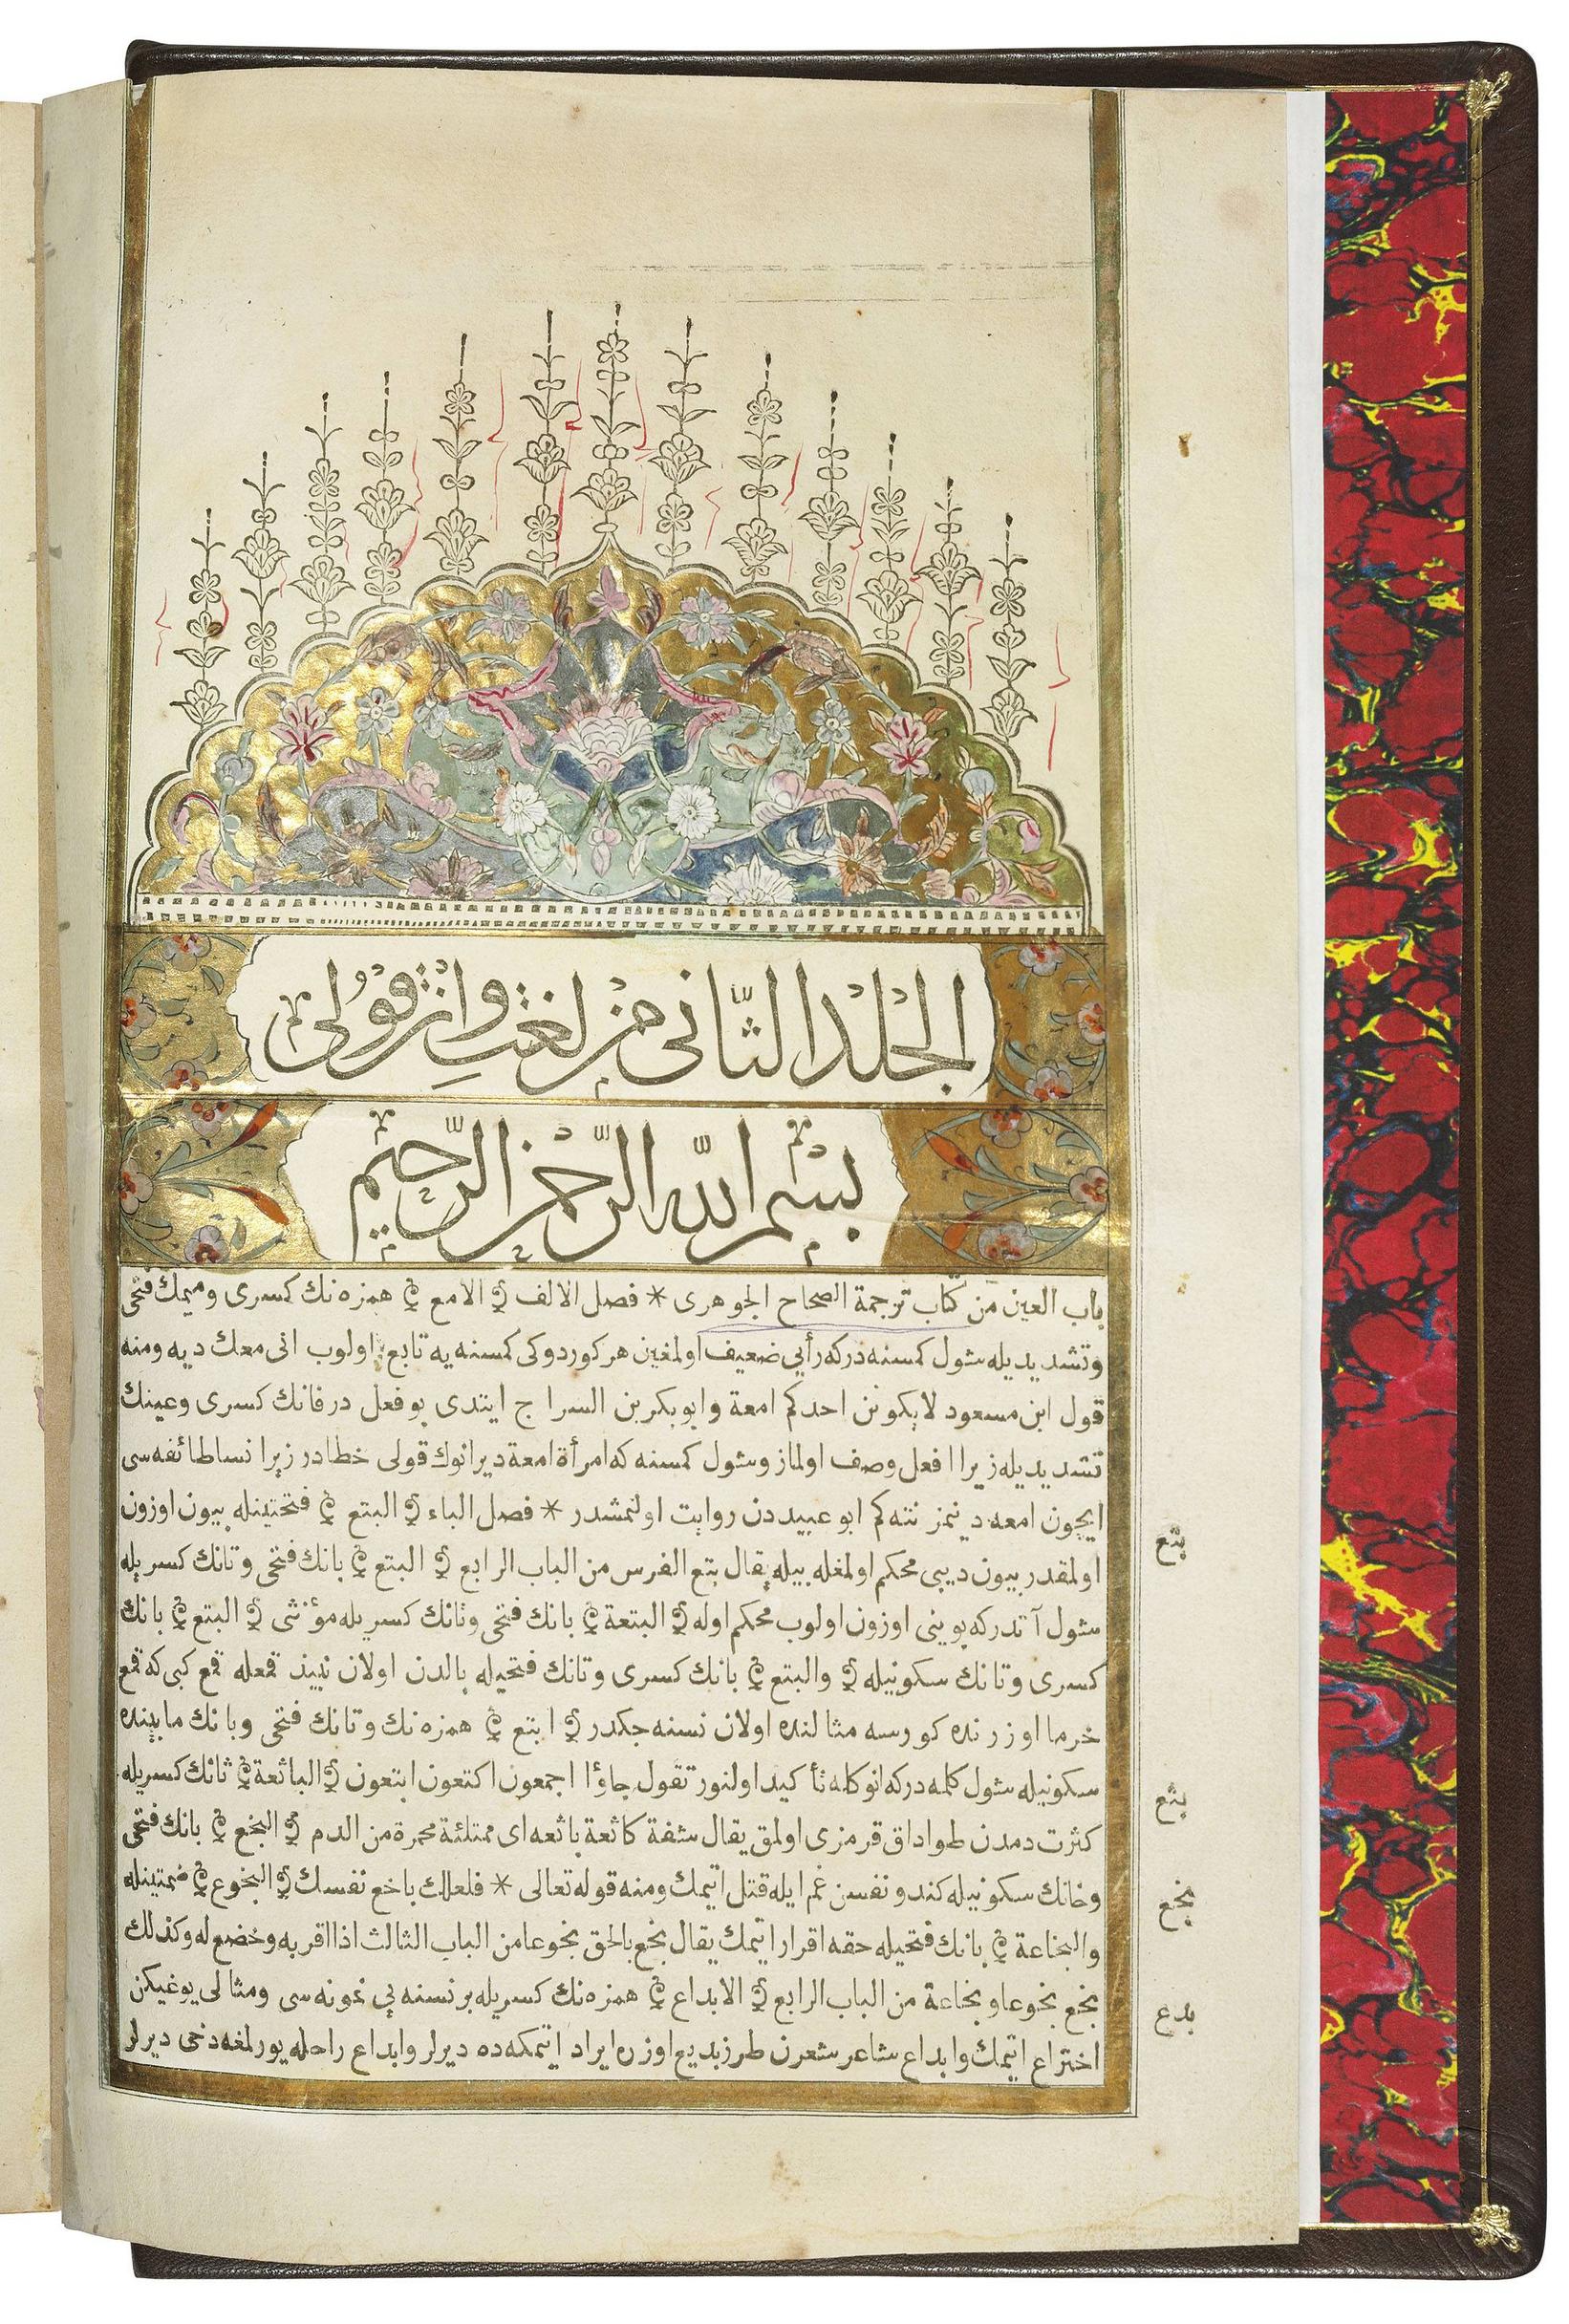 الجلد الثانى من لغت وانقولى
بسم الله الرحمن الرحيم
باب العين من كتاب ترجمة الصحاح الجوهرى * فصل الالف الامع همزه نك كسرى وميمك فتحى
وتشديديله شول كمسنه دركه رأيى ضعيف اولمغين هر كوردوكى كمسنه يه تابع اولوب انى معك ديه ومنه
قول ابن مسعود لايكونن احدكم امعة وابو بكر بن السراج ايتدى بو فعل درفانك كسرى وعينك
تشديديله زيرا افعل وصف اولماز وشول كمسنه كه امرأة امعة ديرانوك قولى خطادر زيرا نسا طائفه سى
ايچون امعه دينمز نته كم ابو عبيددن روايت اولنمشدر * فصل الباء البتع فتحتينله بيون اوزون
اولمقدر بيون ديبى محكم اولمغله بيله يقال بتع الفرس من الباب الرابع البتع بانك فتحى وتانك كسريله
شول آتدركه بوينى اوزون اولوب محكم اوله البتعة بانك فتحى وتانك كسريله مؤنثى البتع بانك
كسرى وتانك سكونيله والبتع بانك كسرى وتانك فتحيله بالدن اولان نبيذ قمعله قمع كبى كه قمع
خرما اوزرنده كورسه مثالنده اولان نسنه جكدر ابتع همزه نك وتانك فتحى وبانك مابيننده
سكونيله شول كلمه دركه انوكله تأكيد اولنور تقول جاؤا اجمعون اكتعون ابتعون الباثعة ثانك كسريله
كثرت دمدن طواداق قرمزى اولمق يقال شفة كاثعة باثعه اى ممتلئة محمرة من الدم البخع بانك فتحى
وخانك سكونيله كندو نفسن غم ايله قتل ايتمك ومنه قوله تعالى * فلعلك باخع نفسك البخوع ضمتينله
والبخاعة بانك فتحيله حقه اقرار ايتمك يقال بخع بالحق بخوعا من الباب الثالث اذا اقر به وخضع له وكذلك
بخع بخوعا وبخاعة من الباب الرابع الابداع همزه نك كسريله بر نسنه يى نمونه سى ومثالى يوغيكن
اختراع ايتمك وابداع شاعر شعرن طرز بديع اوزره ايراد ايتمكه ده ديرلر وابداع راحله يورلمغه دخى ديرلر
بتع
بثع
بخع
بدع